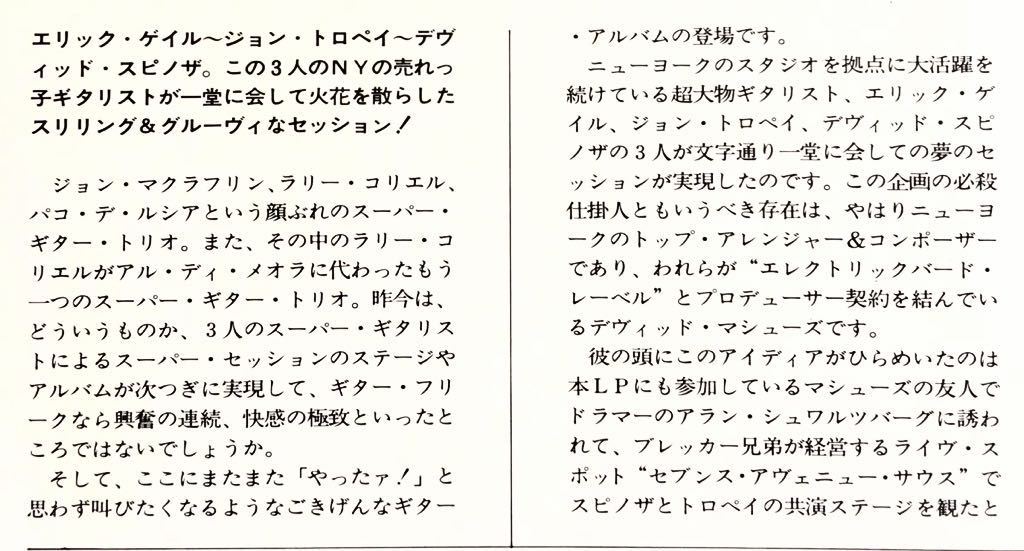 エリック・ゲイル〜ジョン・トロペイ〜デヴ
ィッド・スピノザ。この3人のNYの売れっ
子ギタリストが一堂に会して火花を散らした
スリリング&グルーヴィなセッション!
ジョン・マクラフリン、ラリー・コリエル、
パコ・デ・ルシアという顔ぶれのスーパー・
ギター・トリオ。また、その中のラリー・コ
リエルがアル・ディ・メオラに代わったもう
一つのスーパー・ギター・トリオ。昨今は、
どういうものか、3人のスーパー・ギタリス
トによるスーパー・セッションのステージや
アルバムが次つぎに実現して、ギター・フリ
ークなら興奮の連続、快感の極致といったと
ころではないでしょうか。
そして、ここにまたまた「やったァ!」と
思わず叫びたくなるようなごきげんなギター
・アルバムの登場です。
ニューヨークのスタジオを拠点に大活躍を
続けている超大物ギタリスト、エリック・ゲ
イル、ジョン・トロペイ、デヴィッド・スピ
ノザの3人が文字通り一堂に会しての夢のセ
ッションが実現したのです。この企画の必殺
仕掛人ともいうべき存在は、やはりニューヨ
ークのトップ・アレンジャー&コンポーザー
であり、われらが“エレクトリックバード・
レーベル”とプロデューサー契約を結んでい
るデヴィッド・マシューズです。
彼の頭にこのアイディアがひらめいたのは
本LPにも参加しているマシューズの友人で
ドラマーのアラン・シュワルツバーグに誘わ
れて、ブレッカー兄弟が経営するライヴ・ス
ポット“セブンス・アヴェニュー・サウス”で
スピノザとトロペイの共演ステージを観たと